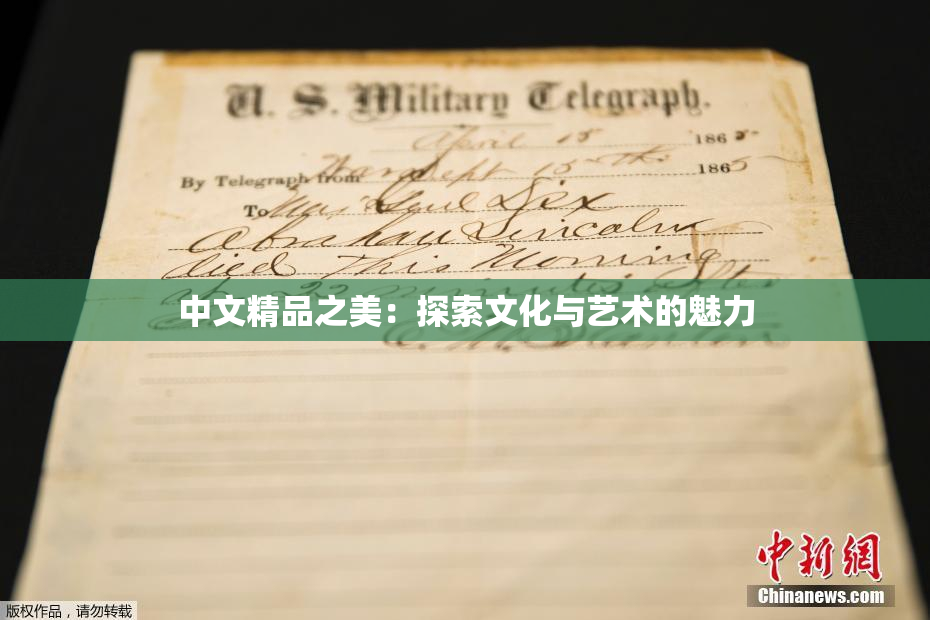 U. S. Military Telegraph.
April 15 1865
By Telegraph from War Dept 15th 1865
To Maj Genl Dix
Abraham Lincoln
died This Morning
at 22 minutes after
中文精品之美：探索文化与艺术的魅力
E. M. Stanton
中新网
Chinanews.com
版权作品，请勿转载